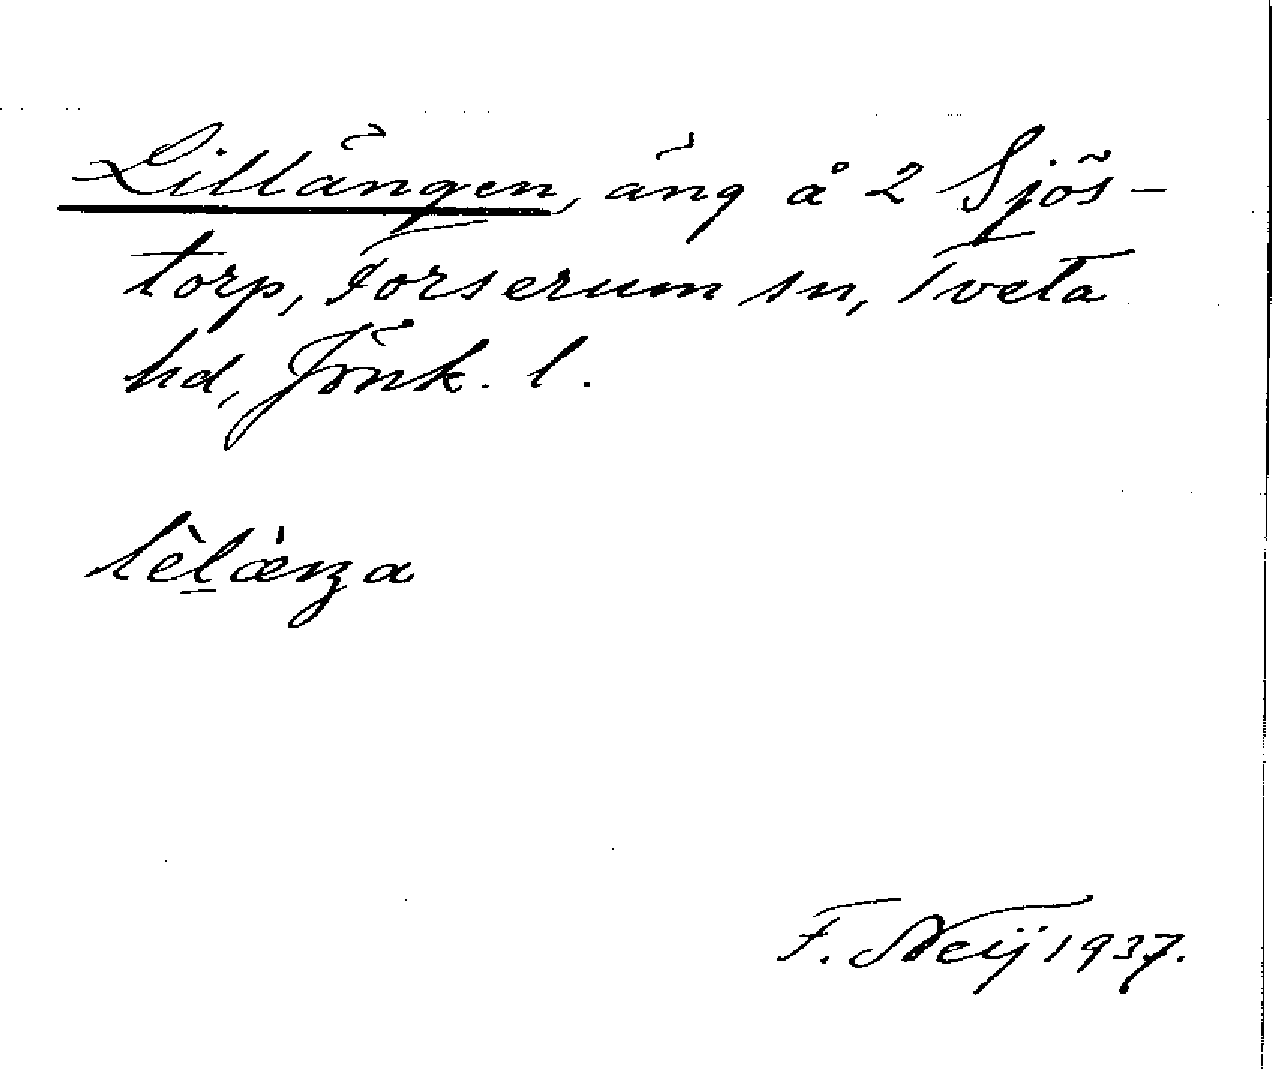 Lillängen, äng å 2 Sjös-
torp, Forserum sn, Tveta
hd, Jönk. l.
lèlæŋa
F. Neij 1937.